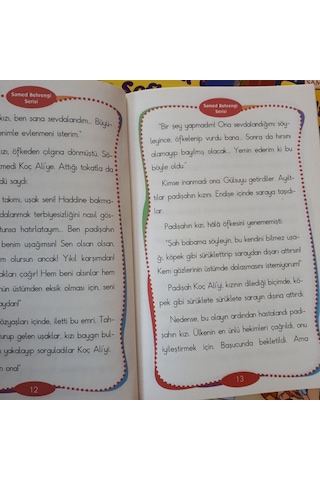 Samed Behrengi
Serisi
kızı, ben sana sevdalandım... Büyü-
enimle evlenmeni isterim."
kızı, öfkeden çılgına dönmüştü. Sö-
medi Koç Ali'ye. Attığı tokatla da
dü saydı:
takımı, uşak seni! Haddine bakma-
dalanmak terbiyesizliğini nasıl gös-
tunsa hatırlatayım... Ben padişahın
benim uşağımsın! Sen olsan olsan,
m olursun ancak! Yıkıl karşımdan!
akları çağır! Hem beni alsınlar hem
nün üstümden eksik olması için, seni
aydan!"
özyaşları içinde, iletti bu emri. Tah-
urup gelen uşaklar, kızı baygın bul-
yakalayıp sorguladılar Koç Ali'yi.
n ona!"
12
Samed Behrengi
Serisi
"Bir şey yapmadım! Ona sevdalandığımı söy-
leyince, öfkelenip vurdu bana... Sonra da hırsını
alamayıp bayılmış olacak... Yemin ederim ki bu
böyle oldu."
Kimse inanmadı ona. Gülsuyu getirdiler. Ayılt-
tılar padişahın kızını. Endişe içinde saraya taşıdı-
lar.
Padişahın kızı, hâlâ öfkesini yenememişti:
"Şah babama söyleyin, bu kendini bilmez uşa-
ğı, köpek gibi sürüklettirip saraydan dışarı attırsın!
Kem gözlerinin üstümde dolaşmasını istemiyorum!"
Padişah Koç Ali'yi, kızının dilediği biçimde, kö-
pek gibi sürüklete sürüklete sarayın dışına attırdı.
Nedense, bu olayın ardından hastalandı padi-
şahın kızı. Ülkenin en ünlü hekimleri çağrıldı, onu
iyileştirmek için. Başucunda bekletildi. Ama
13